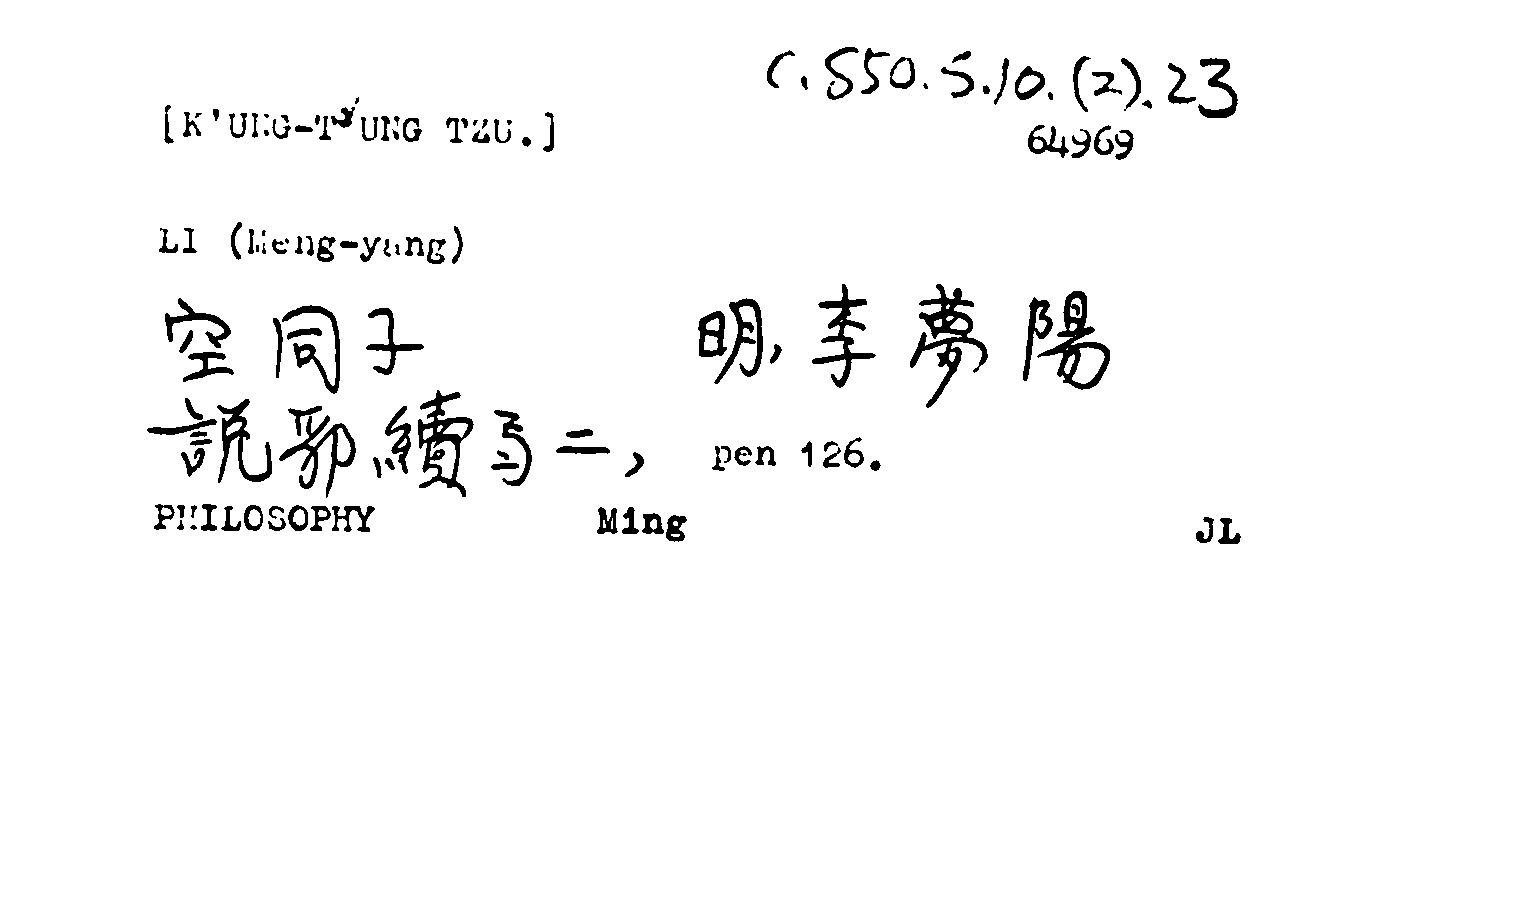 C.S50.5.10.(2).23
[K'UNG-T'UNG TZU.]
64969
LI (Meng-yang)
空同子 明,李夢陽
說郛續弓二, pen 126.
PHILOSOPHY Ming JL